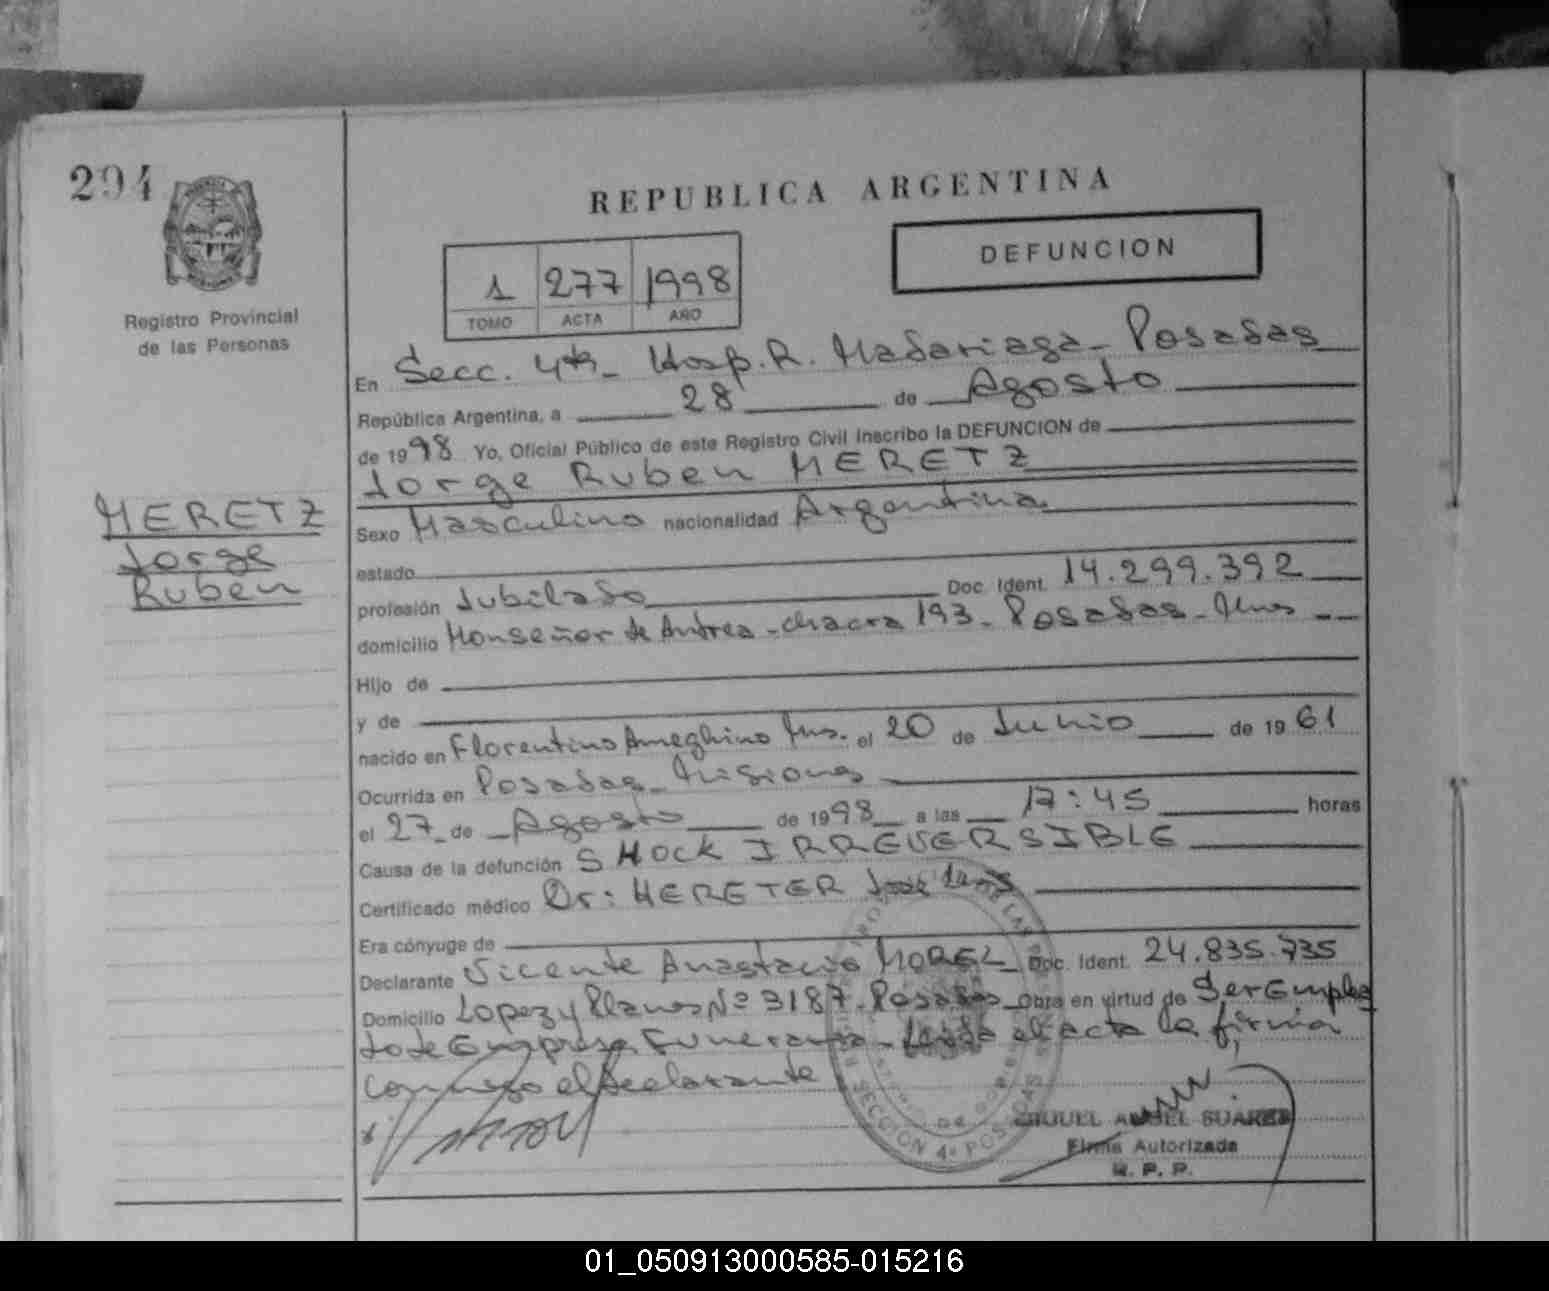 294
REPUBLICA ARGENTINA
DEFUNCION
1 277 1998
TOMO ACTA AÑO
Registro Provincial
de las Personas
En Secc. 4ta - Hosp. R. Madariaga - Posadas
República Argentina, a 28 de Agosto
de 1998 Yo, Oficial Público de este Registro Civil inscribo la DEFUNCION de
Jorge Ruben MERETZ
MERETZ
Jorge
Ruben
Sexo Masculino nacionalidad Argentina
estado
profesión Jubilado Doc. Ident. 14.299.392
domicilio Monseñor de Andrea - chacra 193 - Posadas - Mnes
Hijo de
y de
nacido en Florentino Ameghino Mns. el 20 de Junio de 1961
Ocurrida en Posadas - Misiones
el 27 de Agosto de 1998 a las 17:45 horas
Causa de la defunción SHOCK IRREVERSIBLE
Certificado médico Dr: MERETER José Luis
Era cónyuge de
Declarante Vicente Anastacio MOREL Doc. Ident. 24.835.735
Domicilio Lopez y Planes Nº 3187 - Posadas Obra en virtud de Ser Emplea
do de Empresa Funeraria - Leída el acta la firma
conmigo el declarante
SECCION 4ª POSADAS
MIGUEL ANGEL SUAREZ
Firma Autorizada
R. P. P.
01_050913000585-015216